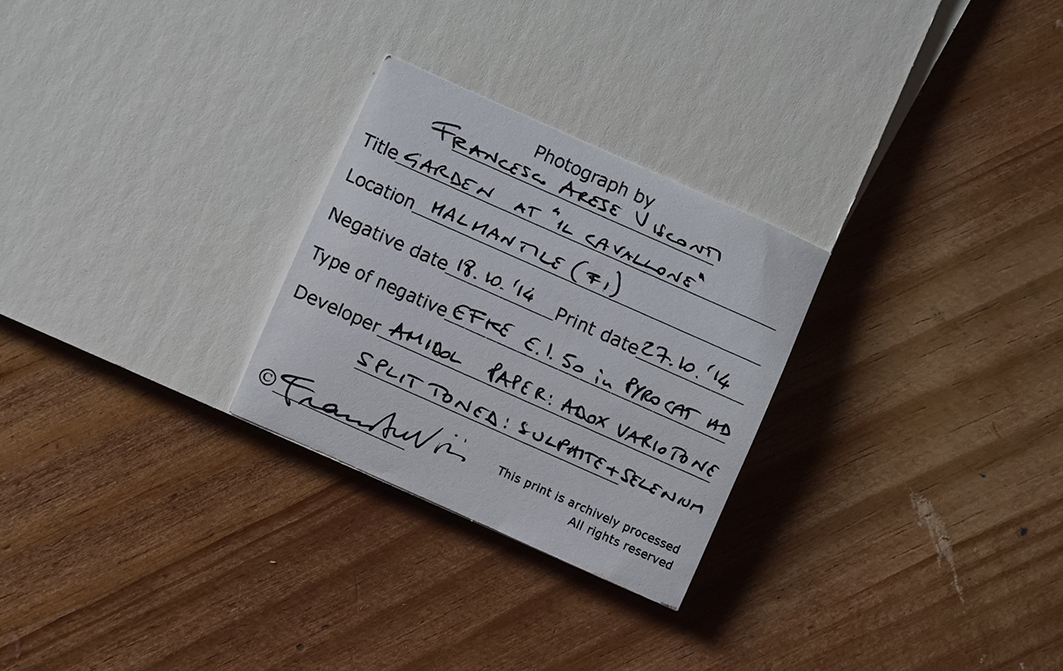 Photograph by
FRANCESCO ARESE VISCONTI
Title GARDEN AT "IL CAVALLONE"
Location MALMANTILE (FI)
Negative date 18.10.'14 Print date 27.10.'14
Type of negative EFKE E.I. 50 in PYROCAT HD
Developer AMIDOL PAPER: ADOX VARIOTONE
SPLIT TONED: SULPHITE + SELENIUM
©
This print is archively processed
All rights reserved